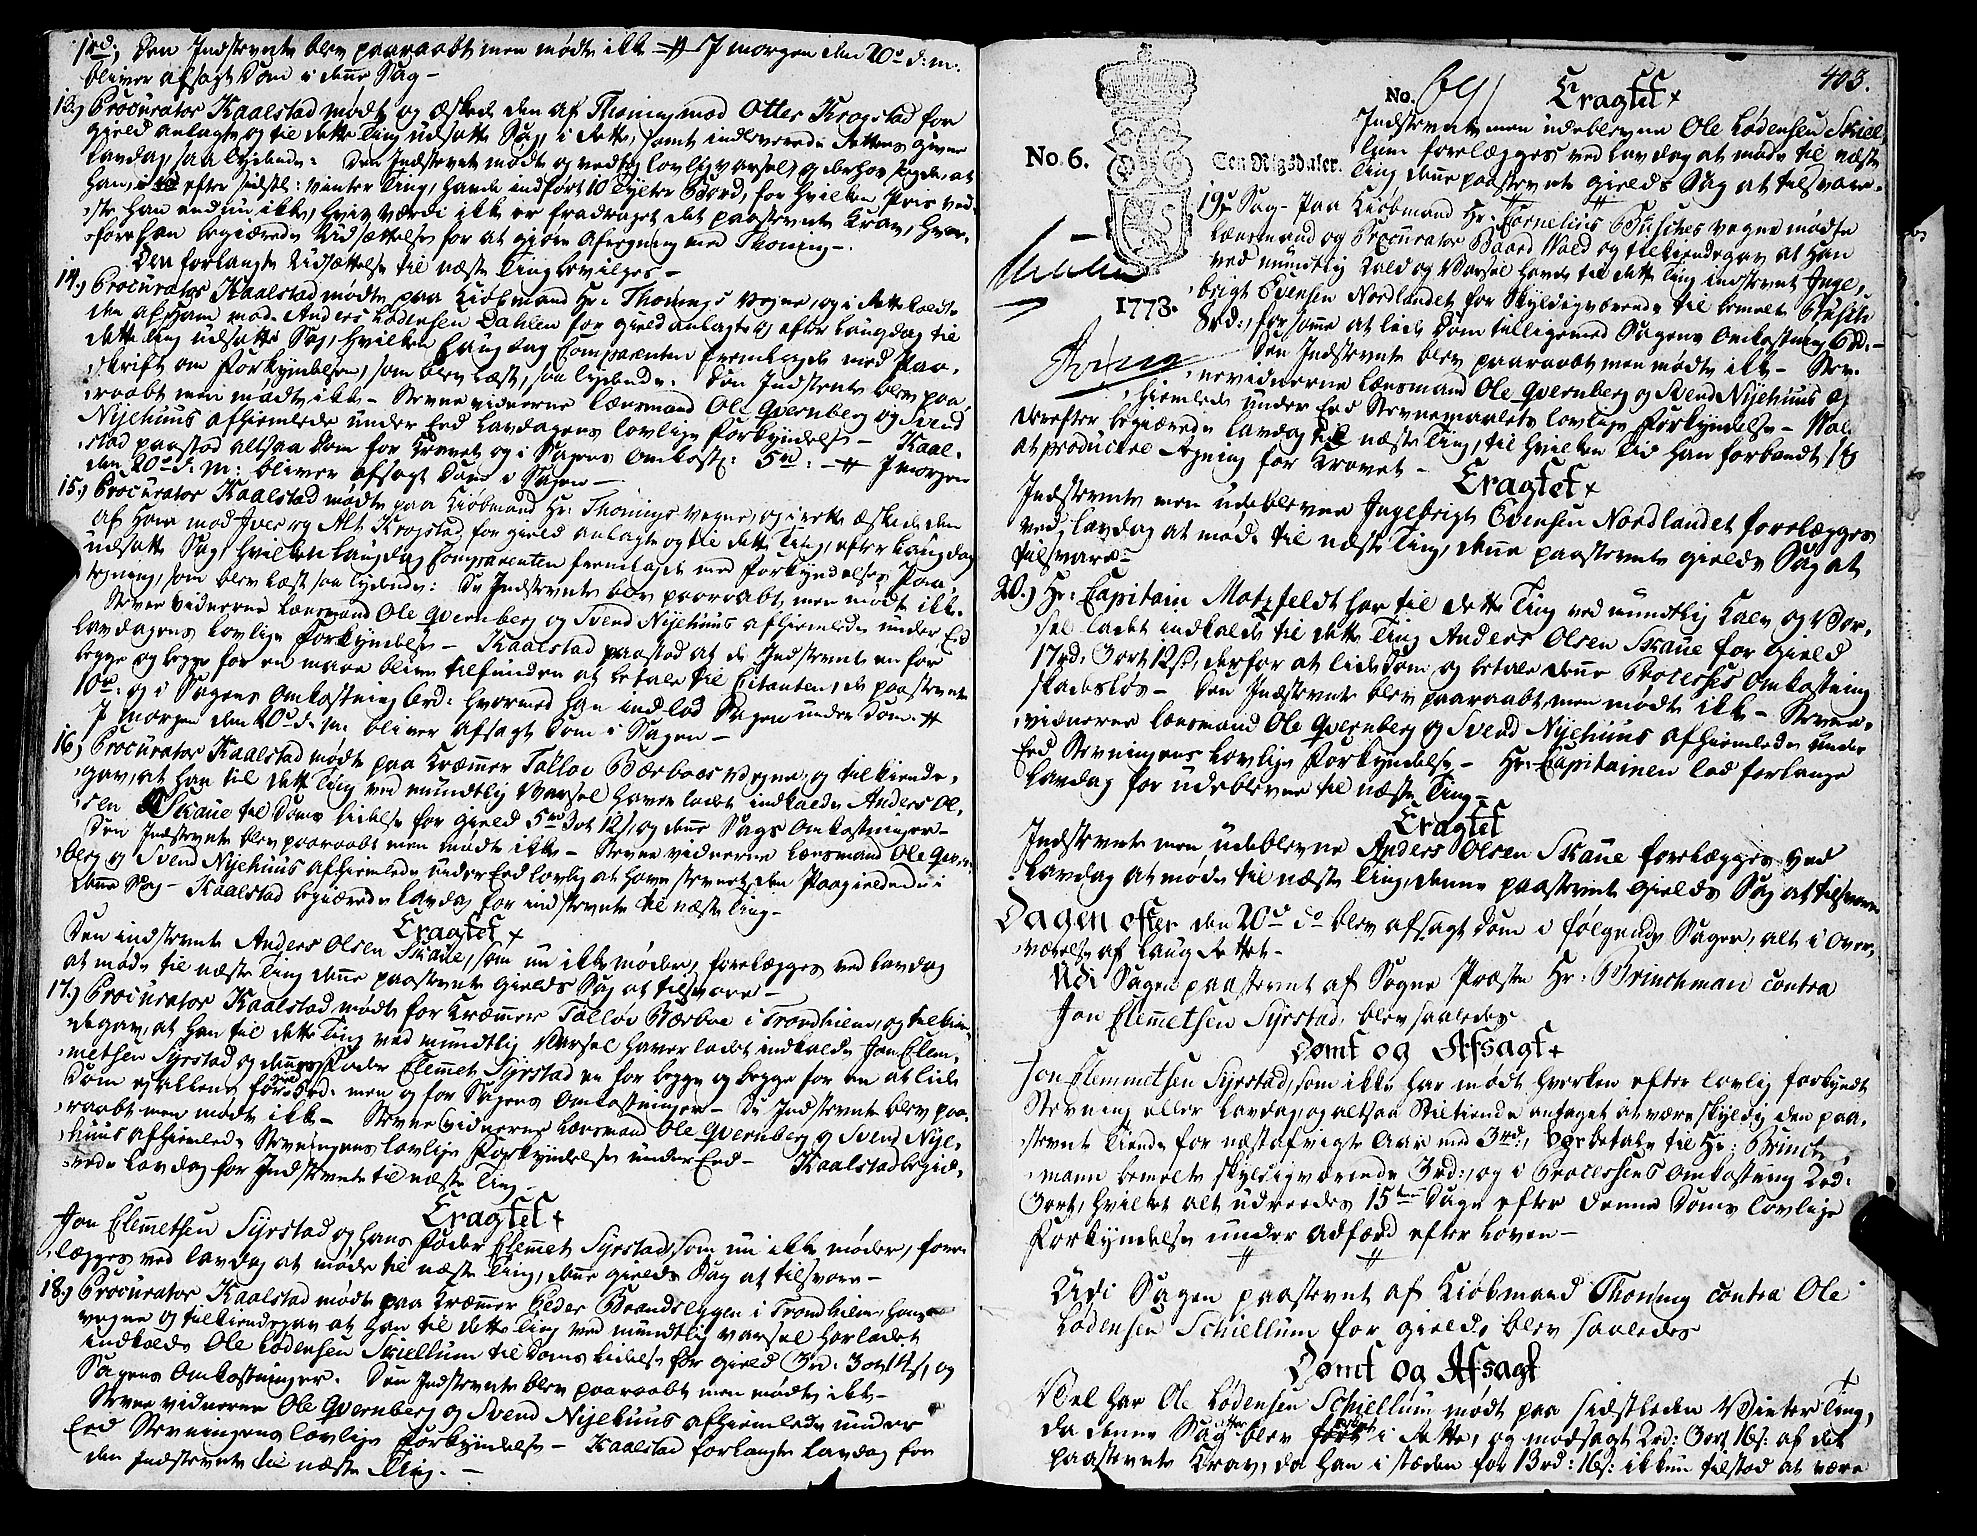 1rd. Den Indstevnte blev paaraabt men mødte ikke # I morgen den 20de d: m:
bliver afsagt Dom i denne Sag –
13.) Procurator Kaalstad mødte og æskede den af Thoning mod Otter Krogstad for
gield anlagte og til dette Ting udsatte Sag i Rette, samt indleverede Rettens givne
Lavdag saa lydende: Den Indstevnte mødte og vedtog lovlig varsel, og derhos sagde, at
han, efter sidstl: vinter Ting, havde indført 10 Tylter Bord, for hvilken Priis ved-
ste han endnu ikke, hvis Værdi ikke er fradraget det paastevnte Krav, hvor-
fore han begiærede Udsættelse for at giøre Afregning med Thoning –
Den forlangte Udsættelse til næste Ting bevilges –
14.) Procurator Kaalstad mødte paa Kiøbmand Hr: Thonings Vegne, og i Rette kaldte
den af ham mod Anders Lodensen Dahlen for gield anlagte og efter Laugdag til
dette Ting udsatte Sag, hvilken Laugdag Comparenten fremlagde med Paa-
skrift om Forkyndelsen, som blev læst, saa lydende: Den Indstevnte blev paa-
raabt men mødte ikke – Stevnevidnerne Lænsmand Ole Qvernberg og Svend
Nyehuus afhiemlede under Eed Lavdagens lovlige Forkyndelse – Kaal-
stad paastod altsaa Dom for Kravet og i Sagens Omkostn: 5rd: – # I morgen
den 20de d. m: bliver afsagt Dom i Sagen –
15.) Procurator Kaalstad mødte paa Kiøbmand Hr: Thonings Vegne, og i rette æskede den
af ham mod Iver og Alt Krogstad for gield anlagte og til dette Ting, efter Laugdag
udsatte Sag, hvilken Laugdag Comparenten fremlagde med Forkyndelses Paa-
tegning, som blev læst saa lydende: De Indstevnte blev paaraabt men mødte ikke.
Stevnevidnerne Lænsmand Ole Qvernberg og Svend Nyehuus afhiemlede under Eed
Lavdagens lovlige Forkyndelse – Kaalstad paastod at de Indstevnte en for
begge og begge for en maae blive tilfunden at betale til Citanten, de paastevnte
10rd: og i Sagens Omkostning 6rd: hvormed han indlod Sagen under Dom. #
I morgen den 20de d. m. bliver afsagt Dom i Sagen –
16.) Procurator Kaalstad mødte paa Kræmmer Tolloe Bærboes Vegne, og tilkiende-
gav, at han til dette Ting ved mundtlig Varsel haver ladet indkalde Anders Ol-
sen Skaue til Doms Lidelse for gield 5rd 3ort 12s, og denne Sags Omkostninger –
Den Indstevnte blev paaraabt men mødte ikke – Stevnevidnerne Lænsmand Ole Qvern-
berg og Svend Nyehuus afhiemlede under Eed lovlig at have stevnet den Paagieldende i
denne Sag – Kaalstad begiærede Lavdag for indstevnte til næste Ting –
Eragtet +
Den indstevnte Anders Olsen Skaue, som nu ikke møder, forelægges ved Lavdag
at møde til næste Ting denne paastevnte gields Sag at tilsvare –
17.) Procurator Kaalstad mødte for Kræmmer Tolloe Bærboe i Trondhiem, og tilkien-
degav, at han til dette Ting ved mundtlig Varsel haver ladet indkalde Jon Elem-
metsen Syrstad og dennes Fader Elemmet Syrstad en for begge og begge for en at lide
Dom ej allene for gield 5rd. men og for Sagens Omkostninger – De Indstevnte blev paa-
raabt men mødte ikke – Stevnevidnerne Lænsmand Ole Qvernberg og Svend Nye-
huus afhiemlede Stevningens lovlige Forkyndelse under Eed – Kaalstad begiæ-
rede Lavdag for Indstevnte til næste Ting –
Eragtet +
Jon Elemetsen Syrstad og hans Fader Elemmet Syrstad, som nu ikke møder, fore-
lægges ved Lavdag at møde til næste Ting, denne gields Sag at tilsvare –
18.) Procurator Kaalstad mødte paa Kræmmer Peder Brandslyggen i Trondhiem hans
vegne og tilkiendegav at han til dette Ting med mundtlig varsel har ladet
indkalde Ole Lodensen Skiellum til Doms Lidelse for gield 3rd. 3ort 14s, og
Sagens Omkostninger. Den Indstevnte blev paaraabt men mødte ikke –
Stevnevidnerne Ole Qvernberg og Svend Nyehuus afhiemlede under
Eed Stevningens lovlige Forkyndelse – Kaalstad forlangte Lavdag for
den Indstevnte til næste Ting. –
403.
No.
Eragtet +
Indstevnte men udeblevne Ole Lodensen Skiel-
lum forelægges ved Lavdag at møde til næste
No. 6.
Een Rigsdaler.
Ting denne paastevnte gields Sag at tilsvare.
19de Sag – Paa Kiøbmand Hr: Cornelius Busches vegne mødte
Lænsmand og Procurator Baard Wald og tilkiendegav at han
ved mundtlig Kald og Varsel havde til dette Ting indstevnt Inge-
brigt Evensen Nordlandet for skyldigværende til bemelte Busch
1773.
8rd:, for samme at lide Dom tilligemed Sagens Omkostning 6rd: –
Den Indstevnte blev paaraabt men mødte ikke – Stev-
nevidnerne Lænsmand Ole Qvernberg og Svend Nyehuus af-
hiemlede under Eed Stevnemaalets lovlige Forkyndelse – Wald
derefter begiærede Lavdag til næste Ting, til hvilken Tid han forbandt sig
at producere Regning for Kravet –
Eragtet +
Indstevnte men udeblevne Ingebrigt Evensen Nordlandet forelægges
ved Lavdag at møde til næste Ting, denne paastevnte gields Sag at
tilsvare –
20.) Hr: Capitain Motzfeldt har til dette Ting ved mundtlig Kald og Var-
sel ladet indkalde til dette Ting Anders Olsen Skaue for Gield
17rd. 3ort 12s, derfor at lide Dom og betale denne Processes Omkostning
skadesløs – Den Indstevnte blev paaraabt men mødte ikke – Stevne-
vidnerne Lænsmand Ole Qvernberg og Svend Nyehuus afhiemlede under
Eed Stevningens lovlige Forkyndelse – Hr: Capitainen lod forlange
Lavdag for udeblevne til næste Ting –
Eragtet
Indstevnte men udeblevne Anders Olsen Skaue forelægges ved
Lavdag at møde til næste Ting, denne paastevnte gields Sag at tilsvare
Dagen efter den 20de do blev afsagt Dom i følgende Sager, alt i Over-
værelse af Laug Rettet –
Udi Sagen paastevnt af Sogne Præsten Hr: Brinchman contra
Jon Elemmetsen Syrstad, blev saaledes
Dømt og Afsagt +
Jon Elemmetsen Syrstad, som ikke har mødt hverken efter lovlig forkyndt
Stevning eller Lavdag, og altsaa stiltiende antaget at være skyldig den paa-
stevnte Tiende for næstafvigte Aar med 3rd:, bør betale til Hr: Brinch-
mann bemelte skyldigværende 3rd:, og i Processens Omkostning 2rd:
3ort, hvilket alt udreedes 15ten Dage efter denne Doms lovlige
Forkyndelse under Adfærd efter Loven –
Udi Sagen paastevnt af Kiøbmand Thoning contra Ole
Lodensen Schiellum for gield, blev saaledes
Dømt og Afsagt
Vel har Ole Lodensen Schiellum mødt paa sidstleden Vinter Ting,
da denne Sag blev i Rette, og modsagt 2rd: 3ort 16s: af det
paastevnte Krav, da han i stæden for 13rd: 16s: ikkun tilstod at være